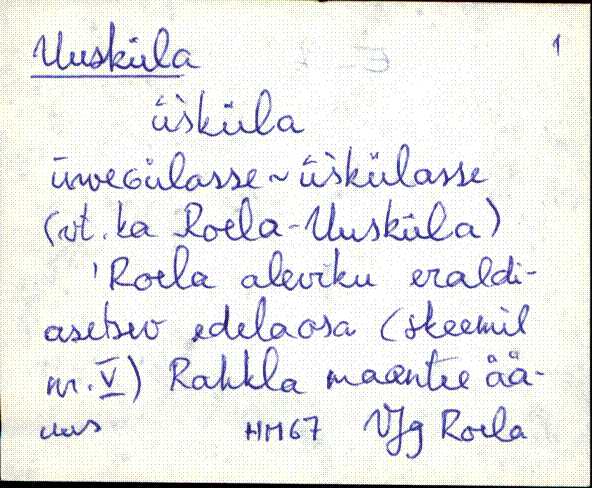 Uusküla 1
üsküla
üweGülasse ~ üskülasse
(vt. ka Roela-Uusküla)
'Roela aleviku eraldi-
asetsev edelaosa (skeemil
nr. V) Rahkla maantee ää-
res HM67 VJg Roela